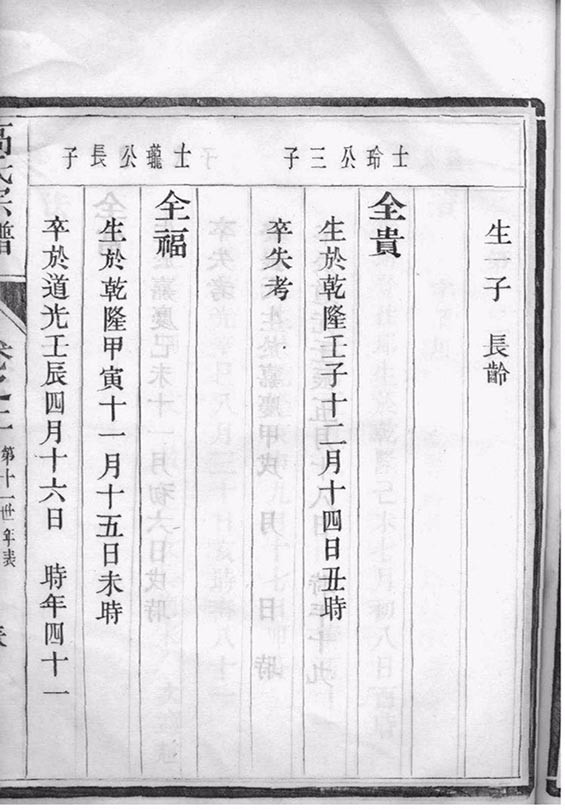 生子 長齡
士玲公三子
全貴
生於乾隆壬子十二月十四日丑時
卒失考
士瓏公長子
全福
生於乾隆甲寅十一月十五日未時
卒於道光壬辰四月十六日 時年四十一
高氏宗譜
卷之二
第十一世年表